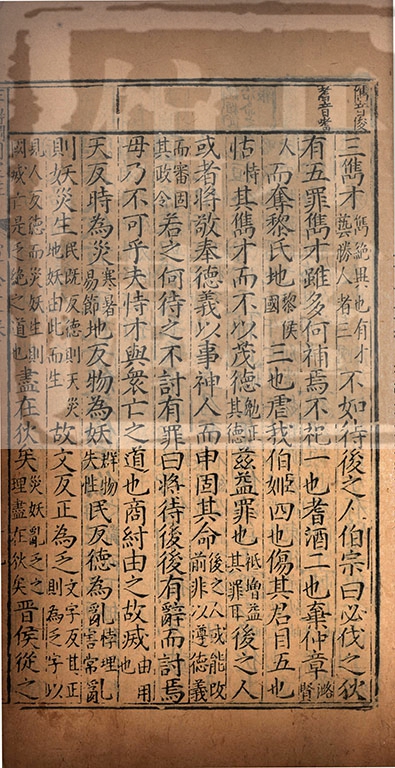 儁音俊
耆音嗜
三儁才儁絶異也有才藝勝人者三不如待後之人伯宗曰必伐之狄
有五罪儁才雖多何補焉不祀一也耆酒二也棄仲章潞賢
人而奪黎氏地黎侯國三也虐我伯姬四也傷其君目五也
怙恃其儁才而不以茂德勉正其德茲益罪也祇增益其罪耳後之人
或者將敬奉德義以事神人而申固其命後之人或能改前非以遵德義
而審固其政令若之何待之不討有罪曰將待後後有辭而討焉
毋乃不可乎夫恃才與衆亡之道也商紂由之故滅由用也
天反時為災寒暑易節地反物為妖群物失性民反德為亂悖理害常亂
則妖災生民既反德則天災地妖由此而生故文反正為乏文字反其正則為乏字以
見人反德而災妖生則國滅亡是乏絶之道也盡在狄矣災妖亂乏之理盡在狄矣晉侯從之